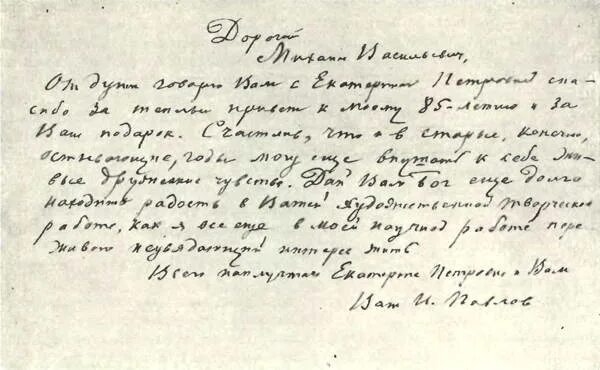 Дорогой
Михаил Васильевич,
От души говорю Вам с Екатериной Петровной спа-
сибо за теплый привет к моему 85-летию и за
Ваш подарок. Счастлив, что и в старые, конечно,
остывающие, годы могу еще внушать к себе жи-
вые дружеские чувства. Дай Вам Бог еще долго
находить радость в Вашей художественной творческой
работе, как я все еще в моей научной работе пере-
живаю неувядающий интерес жить
Всего наилучшего Екатерине Петровне и Вам
Ваш И. Павлов